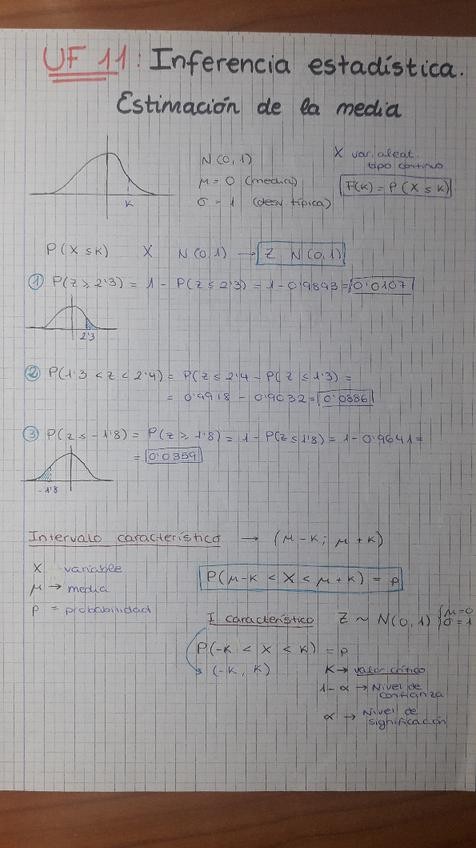 UF 11: Inferencia estadística.
Estimación de la media
N(0,1)
μ = 0 (media)
σ = 1 (desv típica)
X var. aleat.
tipo continuo
F(k) = P(X ≤ k)
k
P(X ≤ k) X N(0,1) → Z N(0,1)
① P(z ≥ 2'3) = 1 - P(z ≤ 2'3) = 1 - 0'9893 = 0'0107
2'3
② P(1'3 < z < 2'4) = P(z ≤ 2'4 - P(z ≤ 1'3) =
= 0'9918 - 0'9032 = 0'0886
③ P(z ≤ -1'8) = P(z ≥ 1'8) = 1 - P(z ≤ 1'8) = 1 - 0'9641 =
= 0'0359
-1'8
Intervalo característico → (μ - k; μ + k)
X variable
μ → media
p = probabilidad
P(μ-k < X < μ+k) = p
I característico Z ~ N(0,1) {μ=0
σ=1
P(-k < X < k) = p
(-k, k)
k → valor crítico
1-α → Nivel de
confianza
α → Nivel de
significación